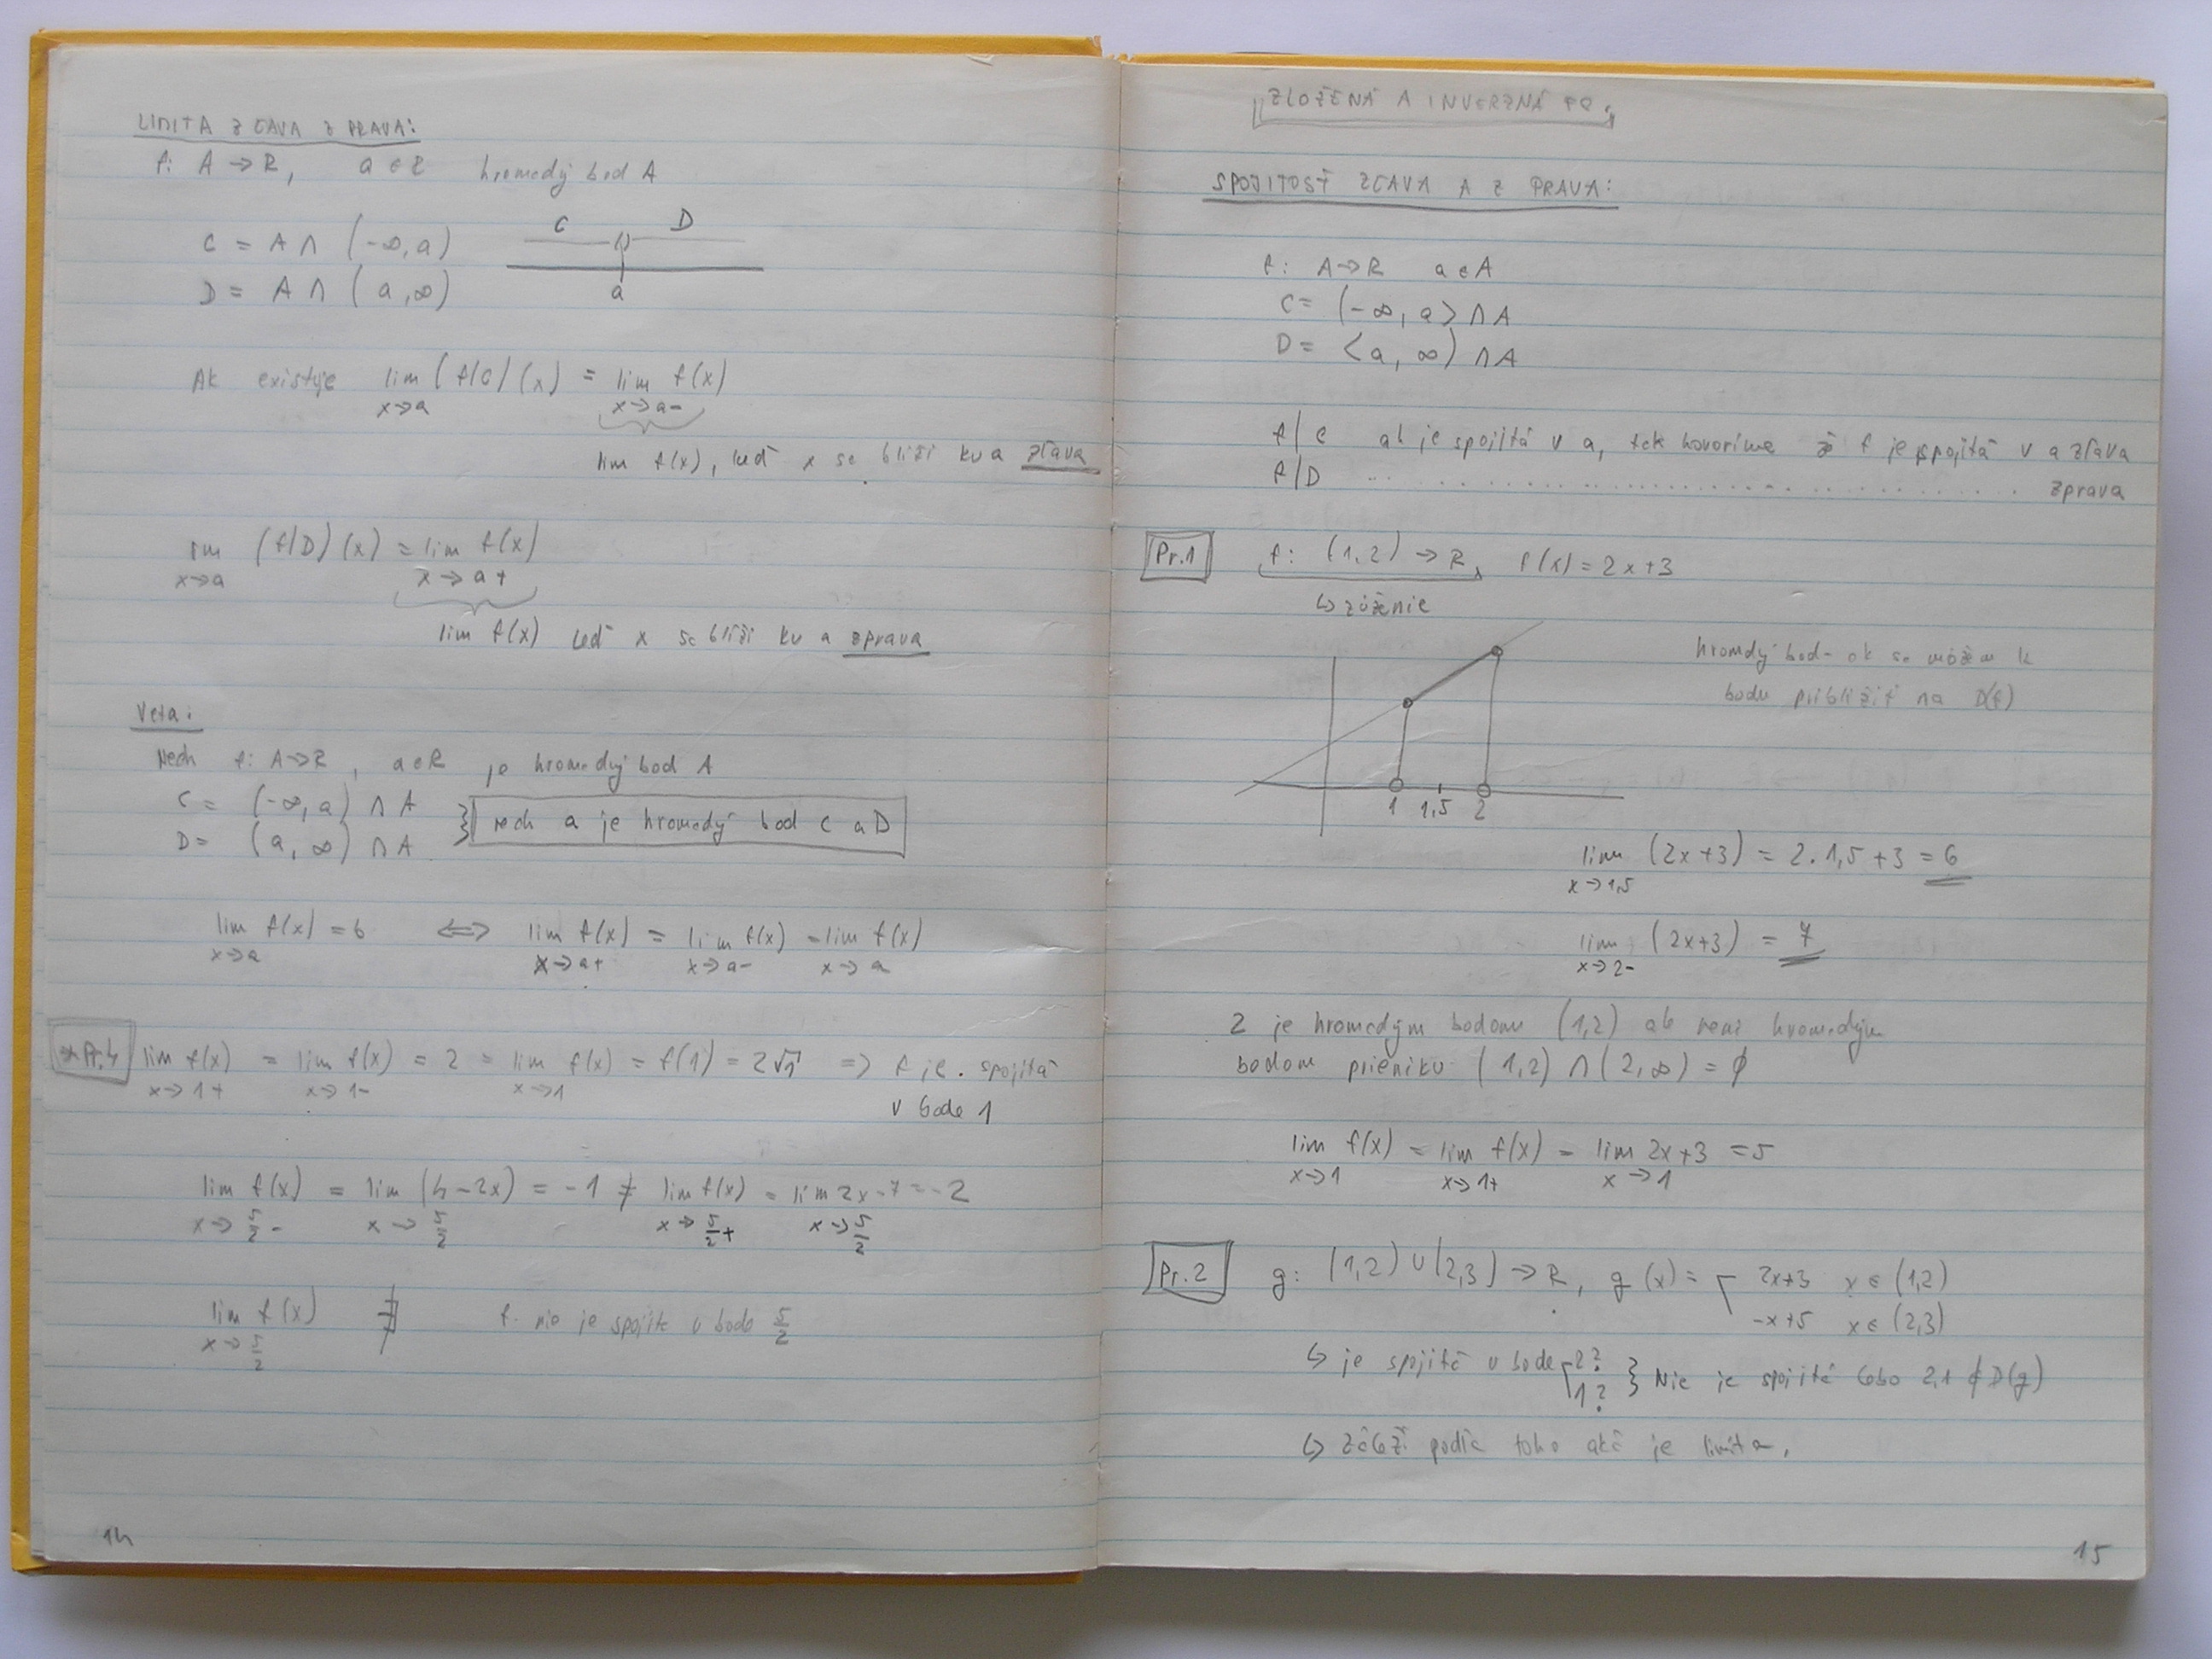 LIMITA ZĽAVA Z PRAVA:
f: A → R, a ∈ R hromadý bod A
C D
C = A ∩ (-∞, a)
D = A ∩ (a, ∞)
a
Ak existuje lim (f/C)(x) = lim f(x)
x→a x→a-
lim f(x), keď x se blíži ku a zľava
lim (f/D)(x) = lim f(x)
x→a x→a+
lim f(x) keď x se blíži ku a zprava
Veta:
Nech f: A→R, a∈R je hromadý bod A
C = (-∞, a) ∩ A
D = (a, ∞) ∩ A } nech a je hromadý bod C a D
lim f(x) = b ⟺ lim f(x) = lim f(x) = lim f(x)
x→a x→a+ x→a- x→a
Pr.4 lim f(x) = lim f(x) = 2 = lim f(x) = f(1) = 2√1 ⇒ f je spojitá
x→1+ x→1- x→1
v bode 1
lim f(x) = lim (4-2x) = -1 ≠ lim f(x) = lim 2x-7 = -2
x→5/2- x→5/2 x→5/2+ x→5/2
lim f(x) ∄ f nie je spojitá v bode 5/2
x→5/2
14
ZLOŽENÁ A INVERZNÁ FC.
SPOJITOSŤ ZĽAVA A Z PRAVA:
f: A→R a∈A
C = (-∞, a> ∩ A
D = <a, ∞) ∩ A
f/C ak je spojitá v a, tak hovoríme že f je spojitá v a zľava
f/D ................................. zprava
Pr.1 f: (1,2) → R, f(x) = 2x+3
↳ zúženie
hromadý bod - ak sa môžem k
bodu priblížiť na D(f)
1 1,5 2
lim (2x+3) = 2.1,5+3 = 6
x→1,5
lim (2x+3) = 7
x→2-
2 je hromadým bodom (1,2) ale není hromadým
bodom prieniku (1,2) ∩ (2,∞) = ∅
lim f(x) = lim f(x) = lim 2x+3 = 5
x→1 x→1+ x→1
Pr.2 g: (1,2) ∪ (2,3) → R, g(x) = 2x+3 x∈(1,2)
-x+5 x∈(2,3)
↳ je spojitá v bode 2?
1? } Nie je spojitá lebo 2,1 ∉ D(g)
↳ záleží podľa toho aká je limita.
15